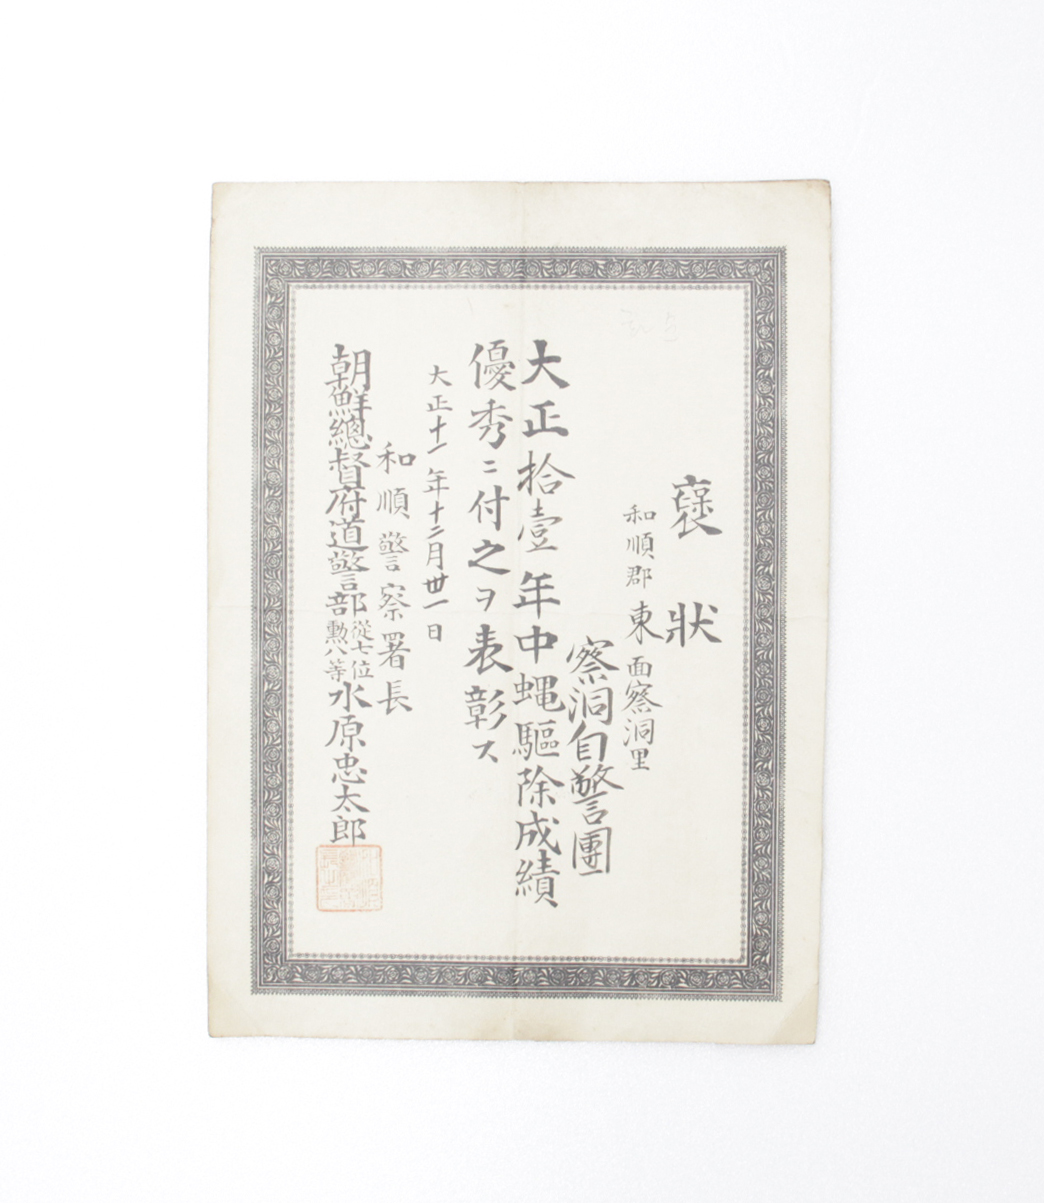 褒狀
和順郡東面察洞里
察洞自警團
大正拾壹年中蠅驅除成績
優秀ニ付之ヲ表彰ス
大正十一年十二月卅一日
和順警察署長
朝鮮總督府道警部從七位勲八等水原忠太郎